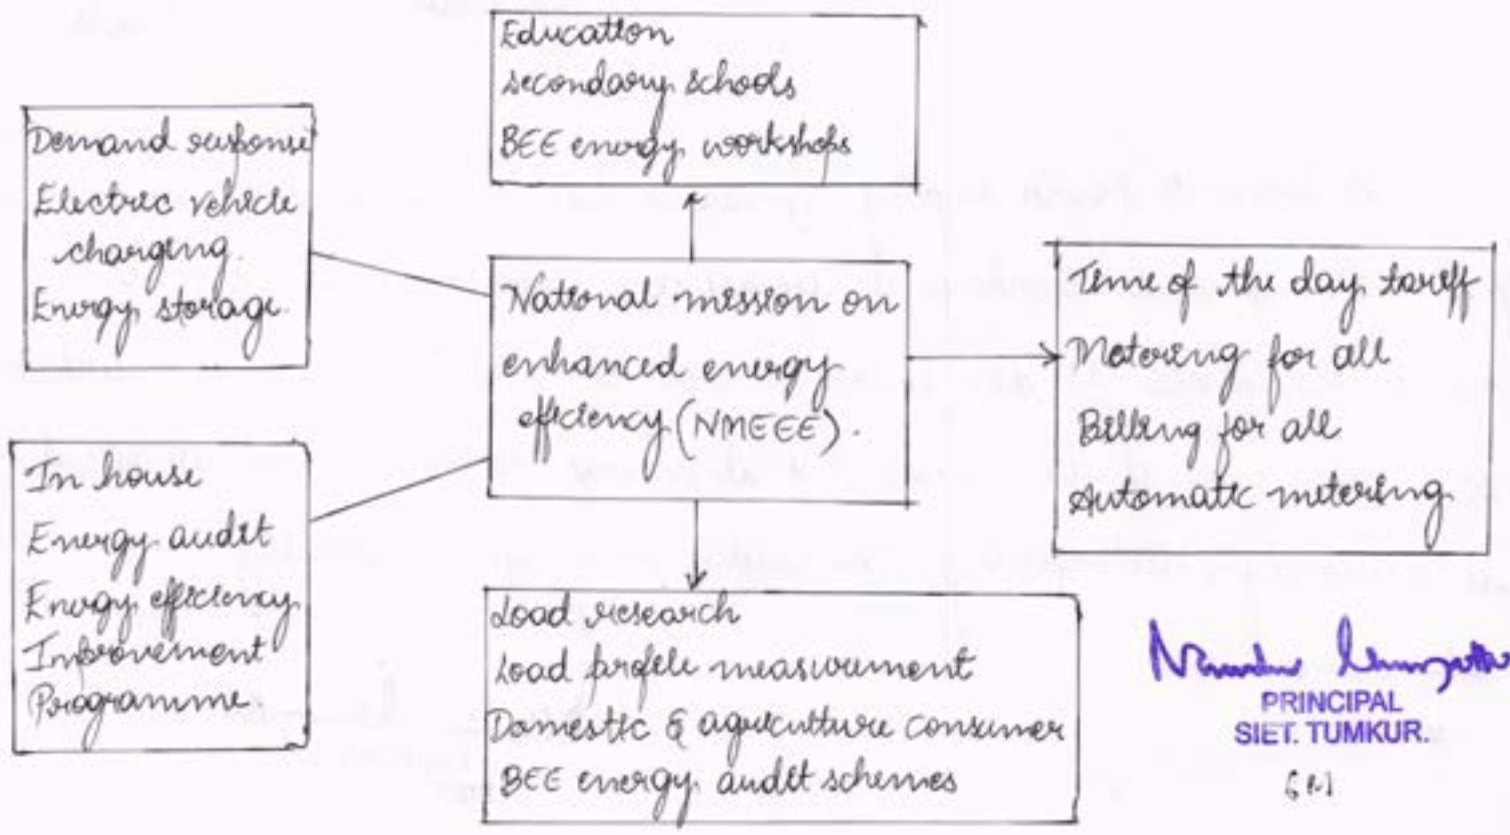 Education
secondary schools
BEE energy workshops
Demand response
Electric vehicle
charging.
Energy storage.
National mission on
enhanced energy
efficiency (NMEEE).
Time of the day tariff
Metering for all
Billing for all
Automatic metering
In house
Energy audit
Energy efficiency
Improvement
Programme
Load research
Load profile measurement
Domestic & agriculture consumer
BEE energy audit schemes
PRINCIPAL
SIET. TUMKUR.